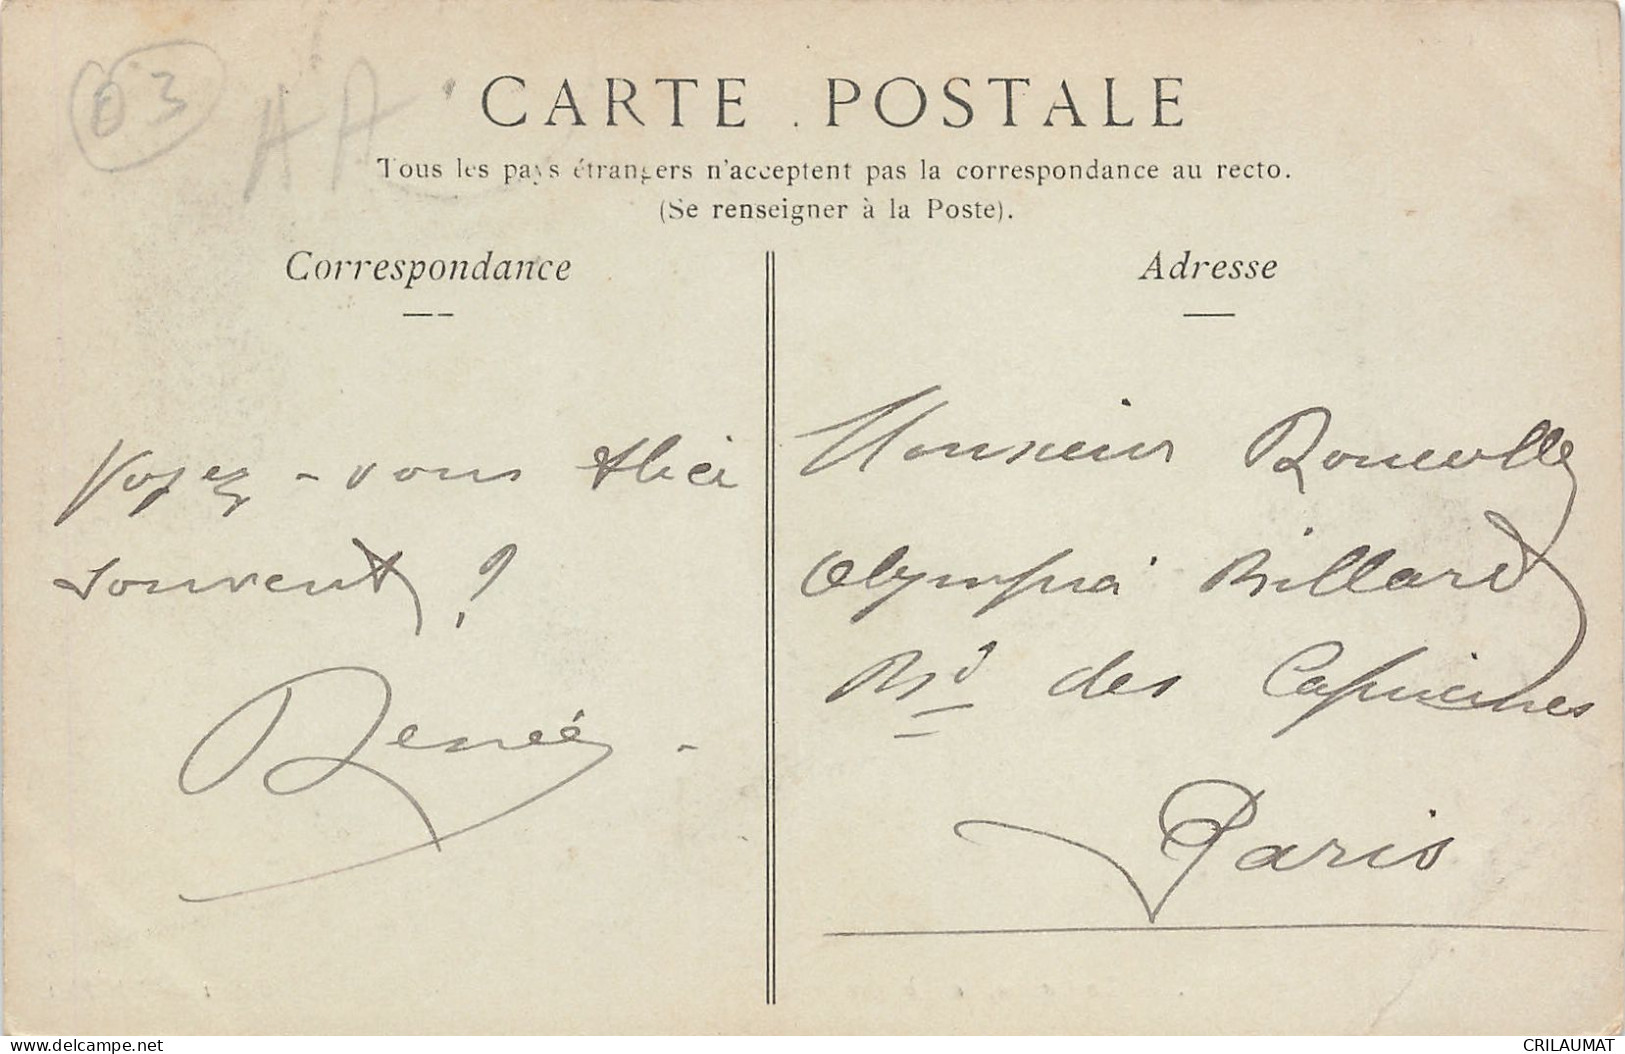 03
AA
CARTE POSTALE
Tous les pays étrangers n'acceptent pas la correspondance au recto.
(Se renseigner à la Poste).
Correspondance
Adresse
Voyez-vous
souvent ?
Renée -
Monsieur
Olympia Billard
Bd des Capucines
Paris
CRILAUMAT